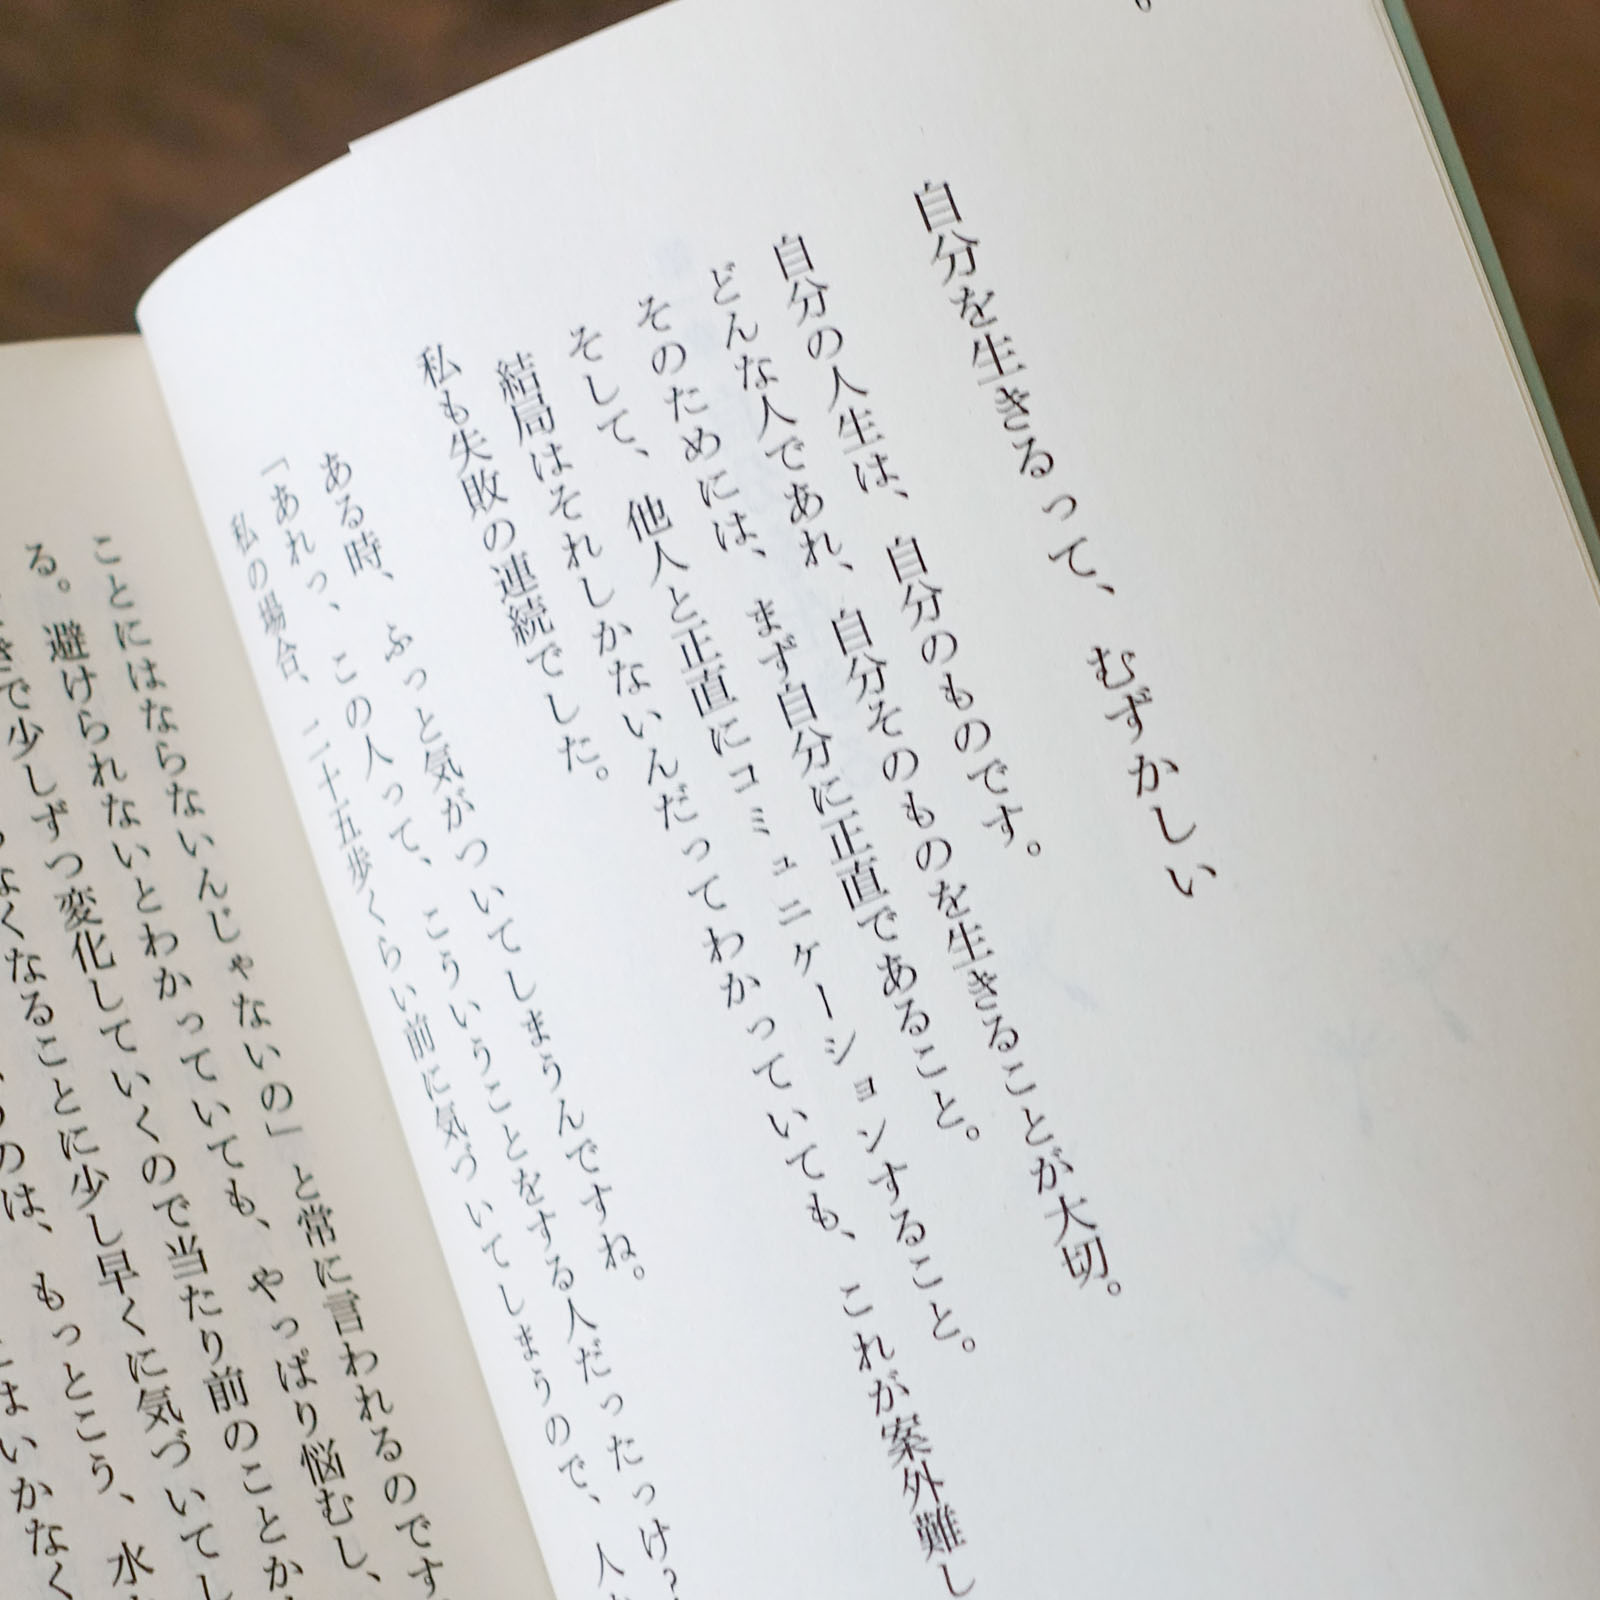 自分を生きるって、むずかしい
自分の人生は、自分のものです。
どんな人であれ、自分そのものを生きることが大切。
そのためには、まず自分に正直であること。
そして、他人と正直にコミュニケーションすること。
結局はそれしかないんだってわかっていても、これが案外難し
私も失敗の連続でした。
ある時、ふっと気がついてしまうんですね。
「あれっ、この人って、こういうことをする人だったっけ?
私の場合、二十五歩くらい前に気づいてしまうので、人
ことにはならないんじゃないの」と常に言われるのです
る。避けられないとわかっていても、やっぱり悩むし、
で少しずつ変化していくので当たり前のことか
なくなることに少し早くに気づいてし
のは、もっとこう、水
はいかなく